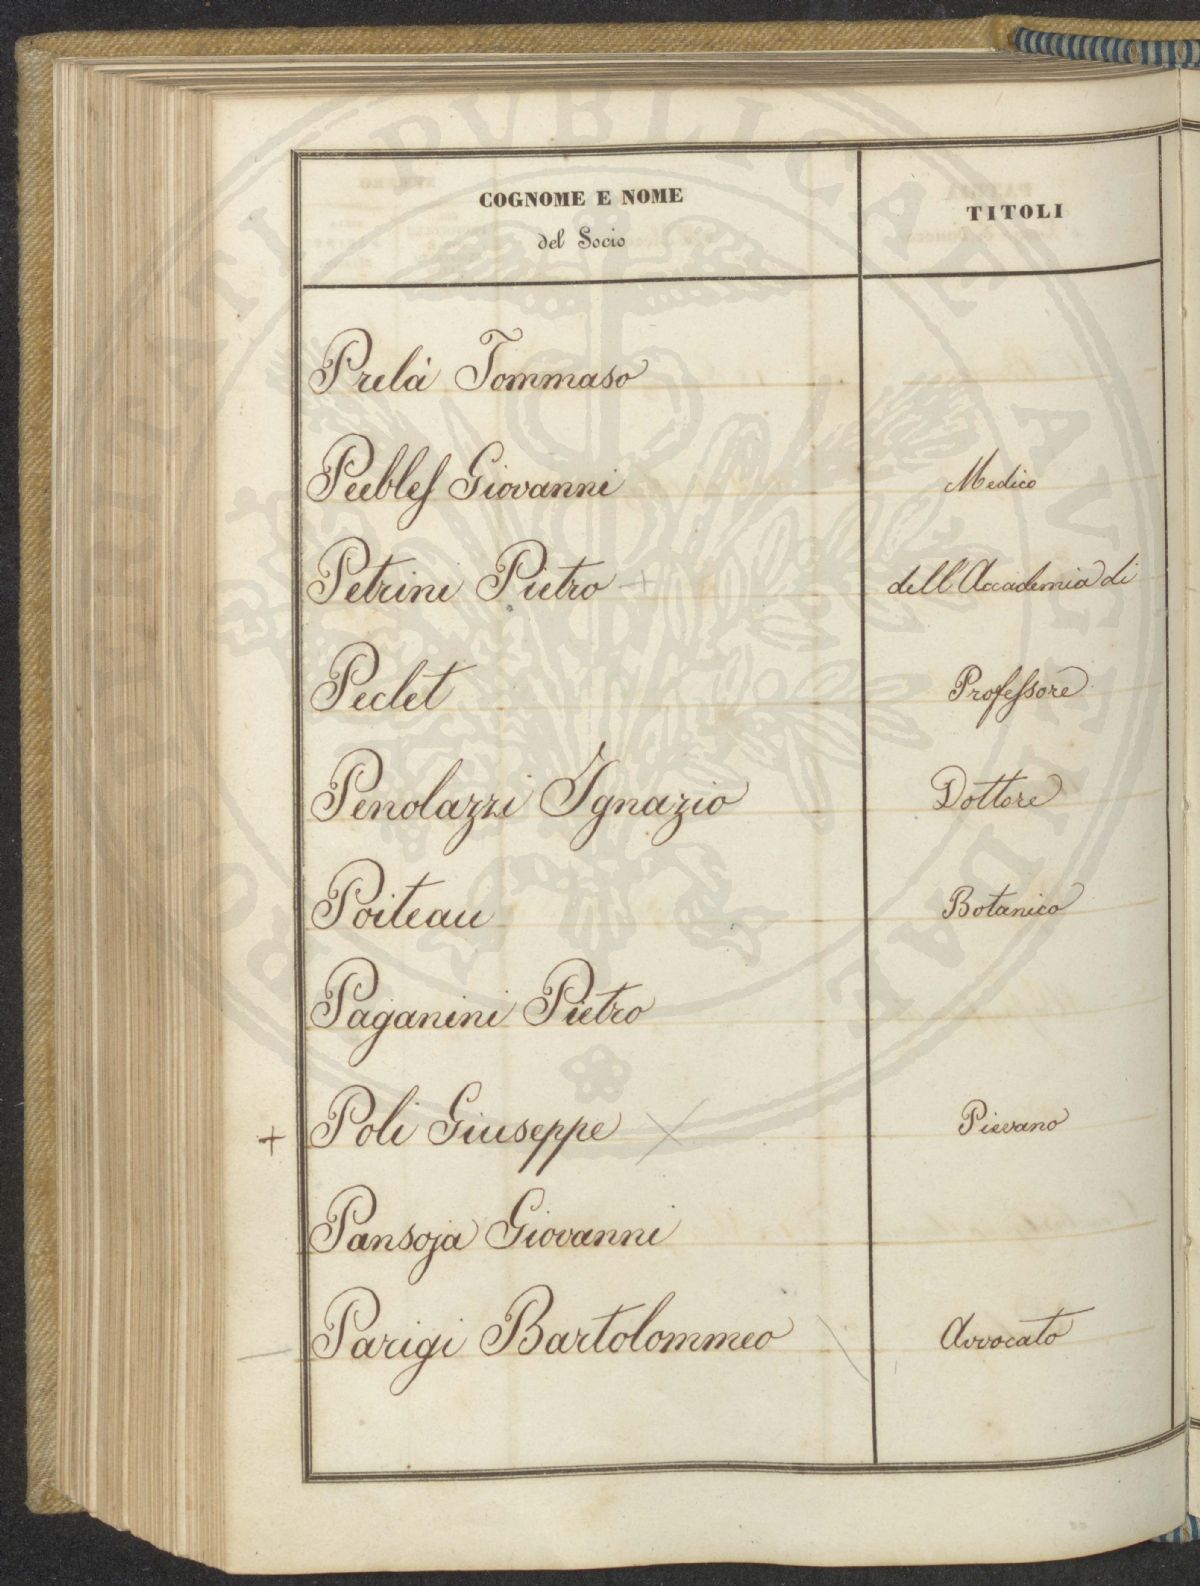 COGNOME E NOME TITOLI
del Socio
Prelà Tommaso
Peebles Giovanni Medico
Petrini Pietro + dell'Accademia di
Peclet Professore
Penolazzi Ignazio Dottore
Poiteau Botanico
Paganini Pietro
+ Poli Giuseppe X Pievano
Pansoja Giovanni
Parigi Bartolommeo Avvocato